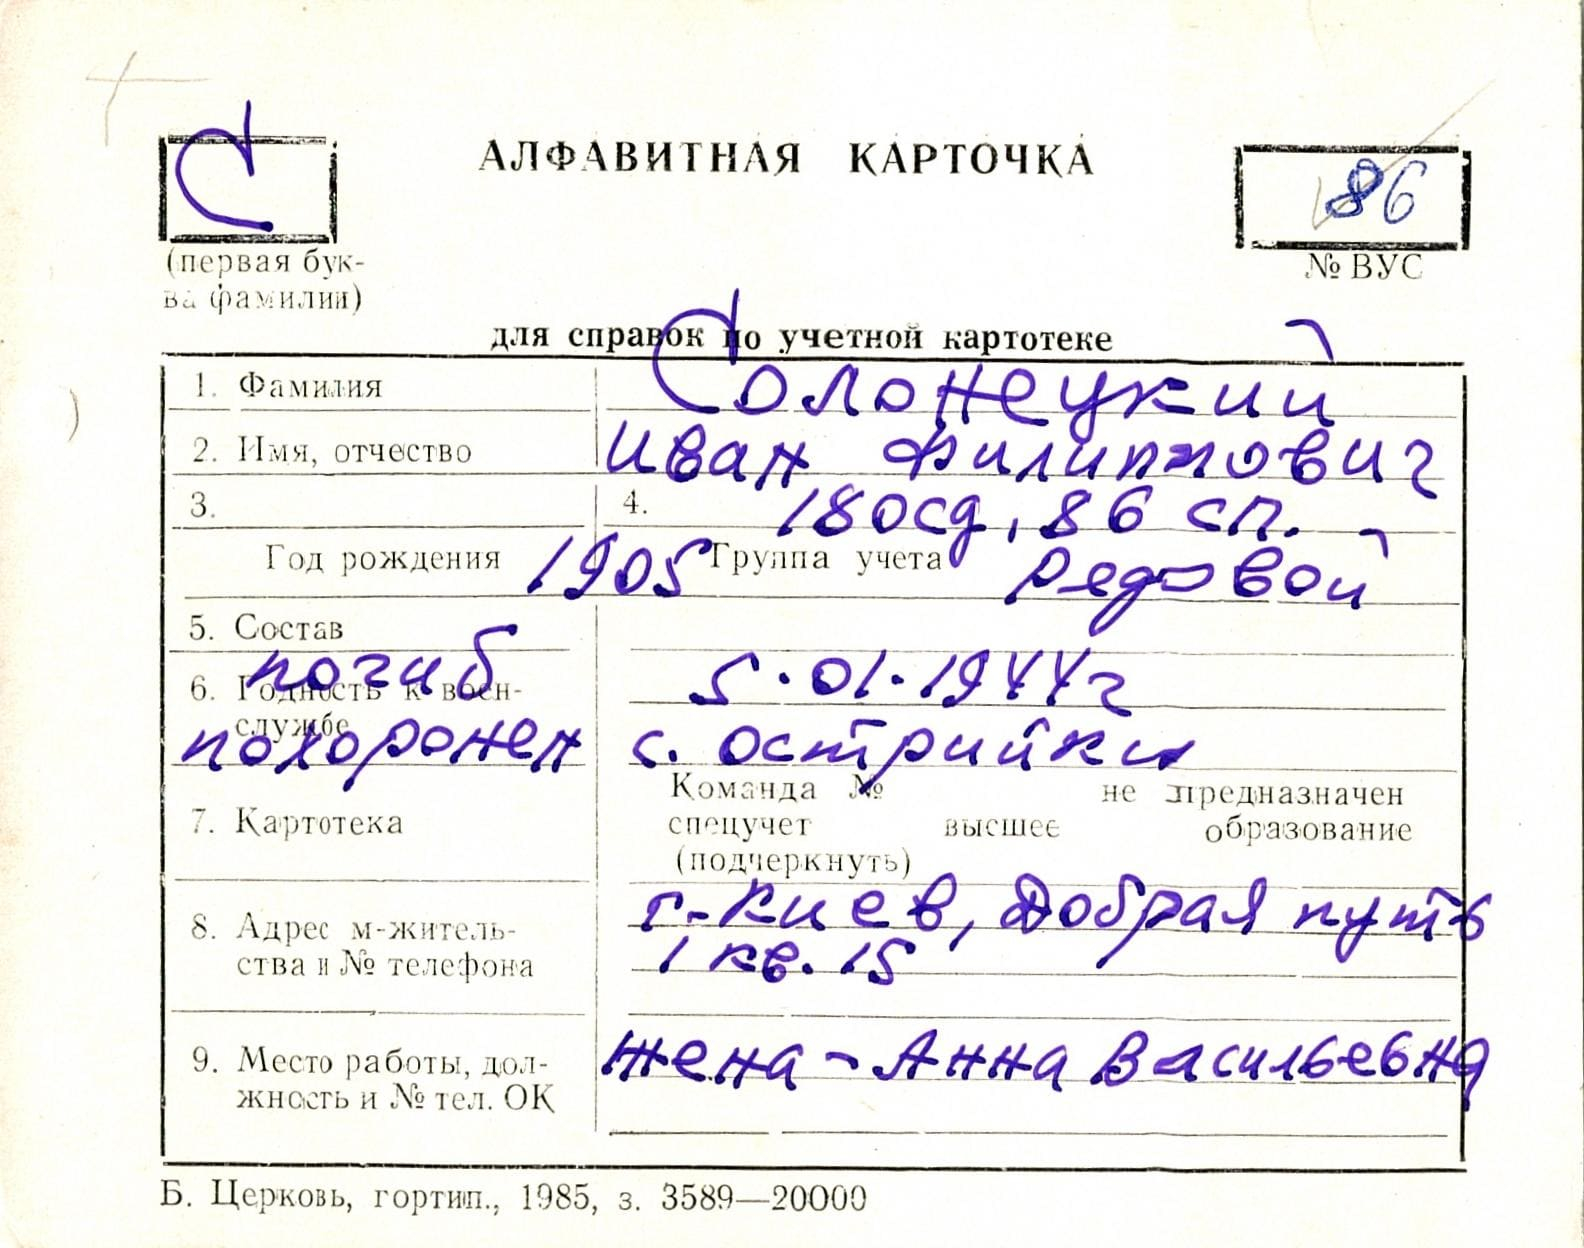 С
АЛФАВИТНАЯ КАРТОЧКА
86
(первая бук-
ва фамилии)
№ ВУС
для справок по учетной картотеке
1. Фамилия Солонецкий
2. Имя, отчество Иван Филиппович
3. 4. 180сд, 86 сп.
Год рождения 1905 Группа учета рядовой
5. Состав
погиб 5.01.1944г
6. Годность к воен-
службе
похоронен с. острийки
Команда № не предназначен
7. Картотека спецучет высшее образование
(подчеркнуть)
8. Адрес м-житель- г. Киев, Добрая путь
ства и № телефона 1 кв. 15
9. Место работы, дол- жена - Анна Васильевна
жность и № тел. ОК
Б. Церковь, гортип., 1985, з. 3589—20000